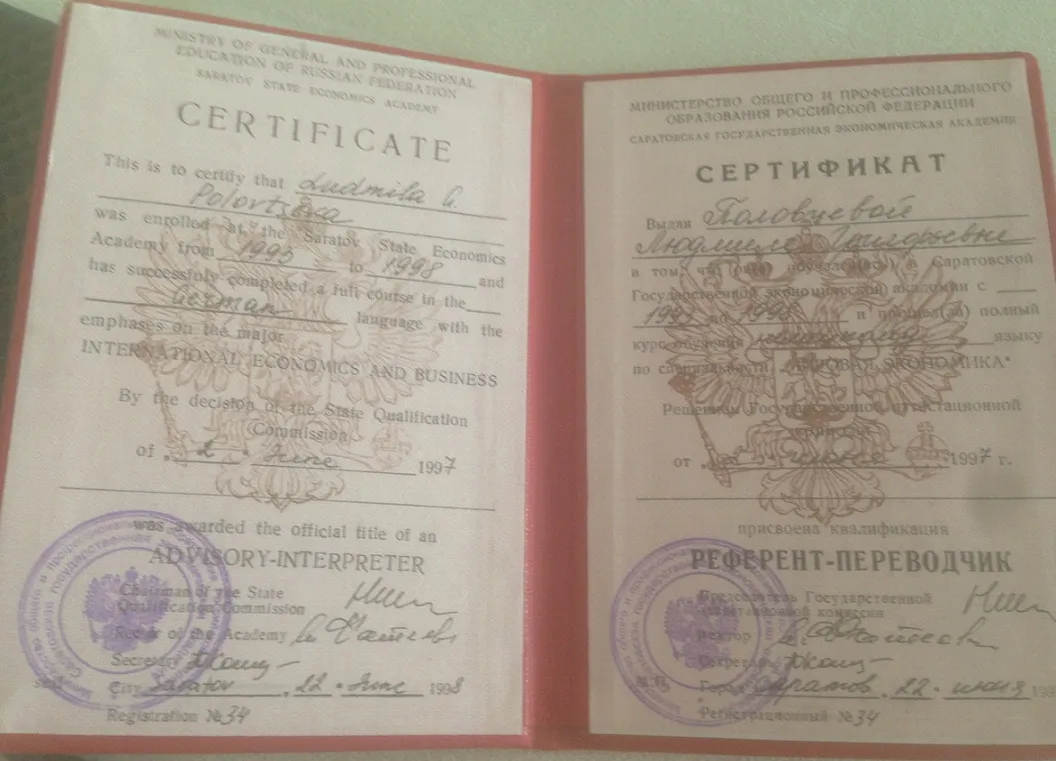 MINISTRY OF GENERAL AND PROFESSIONAL
EDUCATION OF RUSSIAN FEDERATION
SARATOV STATE ECONOMICS ACADEMY
CERTIFICATE
This is to certify that Ludmila G.
Polovtseva
was enrolled at the Saratov State Economics
Academy from 1993 to 1998 and
has successfuly completed a full course in the
German language with the
emphases on the major
INTERNATIONAL ECONOMICS AND BUSINESS
By the decision of the State Qualification
Commission
of „ 2 “ June 1997
was awarded the official title of an
ADVISORY-INTERPRETER
Chairman of the State
Qualification Commission
Rector of the Academy
Secretary
City Saratov „ 22 “ June 1998
Registration № 34
МИНИСТЕРСТВО ОБЩЕГО И ПРОФЕССИОНАЛЬНОГО
ОБРАЗОВАНИЯ РОССИЙСКОЙ ФЕДЕРАЦИИ
САРАТОВСКАЯ ГОСУДАРСТВЕННАЯ ЭКОНОМИЧЕСКАЯ АКАДЕМИЯ
СЕРТИФИКАТ
Выдан Половцевой
Людмиле Григорьевне
в том, что (она) обучалс(ась) в Саратовской
Государственной экономической академии с
1993 по 1998 и прошел(ла) полный
курс обучения немецкому языку
по специальности „МИРОВАЯ ЭКОНОМИКА“
Решением Государственной аттестационной
комиссии
от 1997 г.
присвоена квалификация
РЕФЕРЕНТ-ПЕРЕВОДЧИК
Председатель Государственной
аттестационной комиссии
Ректор
Секретарь
Город Саратов „ 22 “ июня
Регистрационный № 34